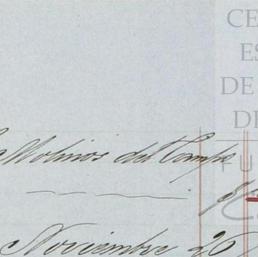 CE
ES
DE
DE
Molinos del Campo
FU
Noviembre 26